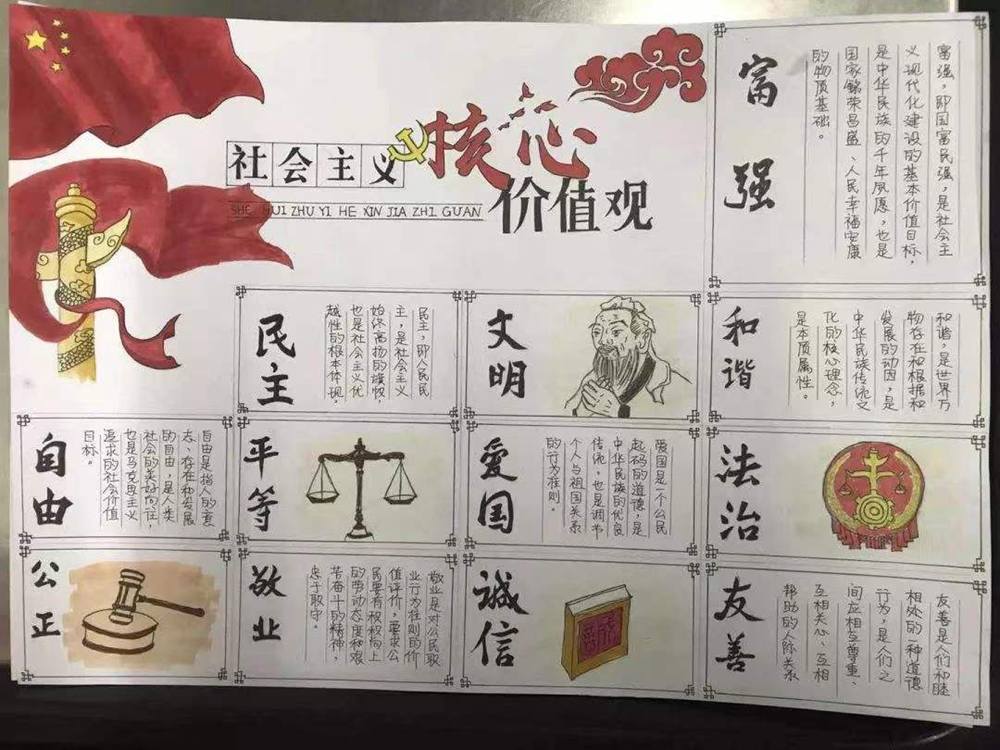 社会主义核心
价值观
SHE HUI ZHU YI HE XIN JIA ZHI GUAN
富强
富强，即国富民强，是社会主
义现代化建设的基本价值目标，
是中华民族的千年夙愿，也是
国家繁荣昌盛、人民幸福安康
的物质基础。
民主
民主，即人民民
主，是社会主义
始终高扬的旗帜，
也是社会主义优
越性的根本体现，
文明
和谐
和谐，是世界万
物存在和根据和
发展的动因，是
中华民族传统文
化的核心理念，
是本质属性。
自由
自由是指人的意
志、存在和发展
的自由，是人类
社会的美好向往，
也是马克思主义
追求的社会价值
目标。
平等
爱国
爱国是一个公民
起码的道德，是
中华民族的优良
传统，也是调节
个人与祖国关系
的行为准则。
法治
公正
敬业
敬业是对公民职
业行为准则的价
值评价，要求公
民要有积极向上
的劳动态度和艰
苦奋斗的精神，
忠于职守。
诚信
友善
友善是人们和睦
相处的一种道德
行为，是人们之
间应相互尊重、
互相关心、互相
帮助的人际关系